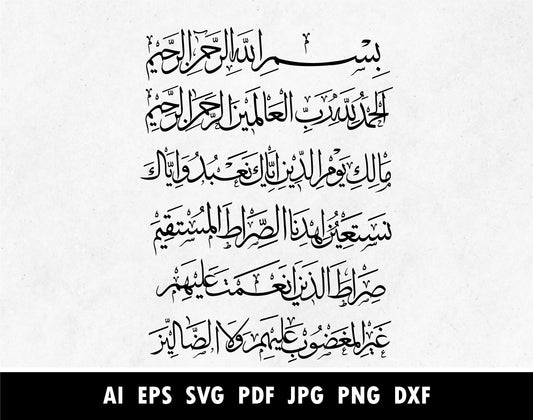 بِسْمِ اللهِ الرَّحْمَنِ الرَّحِيمِ
الْحَمْدُ لِلَّهِ رَبِّ الْعَالَمِينَ الرَّحْمَنِ الرَّحِيمِ
مَالِكِ يَوْمِ الدِّينِ إِيَّاكَ نَعْبُدُ وَإِيَّاكَ
نَسْتَعِينُ اهْدِنَا الصِّرَاطَ الْمُسْتَقِيمَ
صِرَاطَ الَّذِينَ أَنْعَمْتَ عَلَيْهِمْ
غَيْرِ الْمَغْضُوبِ عَلَيْهِمْ وَلَا الضَّالِّينَ
AI EPS SVG PDF JPG PNG DXF